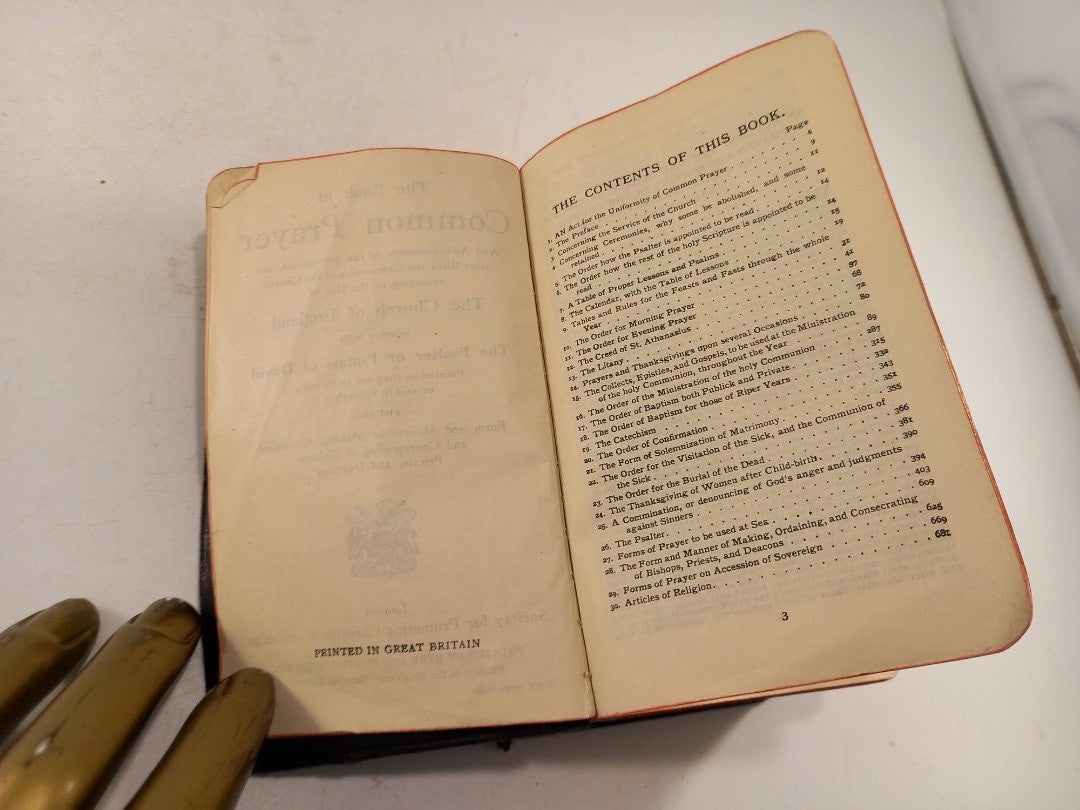 PRINTED IN GREAT BRITAIN
THE CONTENTS OF THIS BOOK.
Page
1. AN Act for the Uniformity of Common Prayer . 4
2. The Preface . 9
3. Concerning the Service of the Church . 11
4. Concerning Ceremonies, why some be abolished, and some
retained . 12
5. The Order how the Psalter is appointed to be read . 14
6. The Order how the rest of the holy Scripture is appointed to be
read . 14
7. A Table of Proper Lessons and Psalms . 15
8. The Calendar, with the Table of Lessons . 19
9. Tables and Rules for the Feasts and Fasts through the whole
Year . 21
10. The Order for Morning Prayer . 41
11. The Order for Evening Prayer . 57
12. The Creed of St. Athanasius . 68
13. The Litany . 72
14. Prayers and Thanksgivings upon several Occasions . 80
15. The Collects, Epistles, and Gospels, to be used at the Ministration
of the holy Communion, throughout the Year . 89
16. The Order of the Ministration of the holy Communion . 287
17. The Order of Baptism both Publick and Private . 315
18. The Order of Baptism for those of Riper Years . 332
19. The Catechism . 343
20. The Order of Confirmation . 351
21. The Form of Solemnization of Matrimony . 355
22. The Order for the Visitation of the Sick, and the Communion of
the Sick . 366
23. The Order for the Burial of the Dead . 381
24. The Thanksgiving of Women after Child-birth . 390
25. A Commination, or denouncing of God's anger and judgments
against Sinners . 394
26. The Psalter . 403
27. Forms of Prayer to be used at Sea . 609
28. The Form and Manner of Making, Ordaining, and Consecrating
of Bishops, Priests, and Deacons . 625
29. Forms of Prayer on Accession of Sovereign . 669
30. Articles of Religion . 681
3